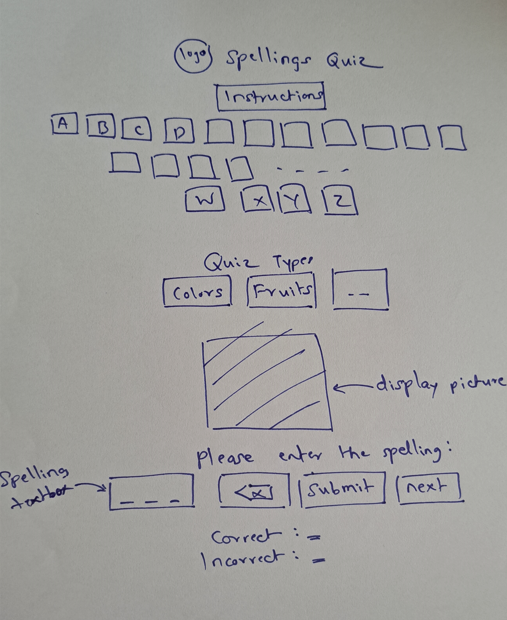 logo Spellings Quiz
Instructions
A B C D
- - - -
W X Y Z
Quiz Types
Colors Fruits - -
display picture
please enter the spelling:
Spelling
textbox
_ _ _ <x Submit next
Correct : =
Incorrect : =